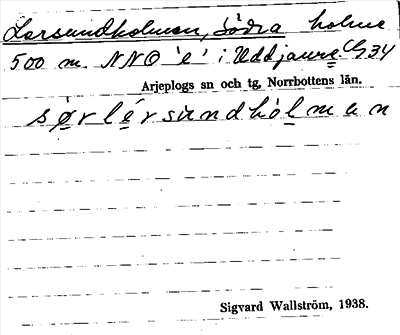 Larsundholmen, Södra holme
500 m. NNO 'e' i Uddjaure. C934
Arjeplogs sn och tg, Norrbottens län.
sørlérsundhòlmen
Sigvard Wallström, 1938.